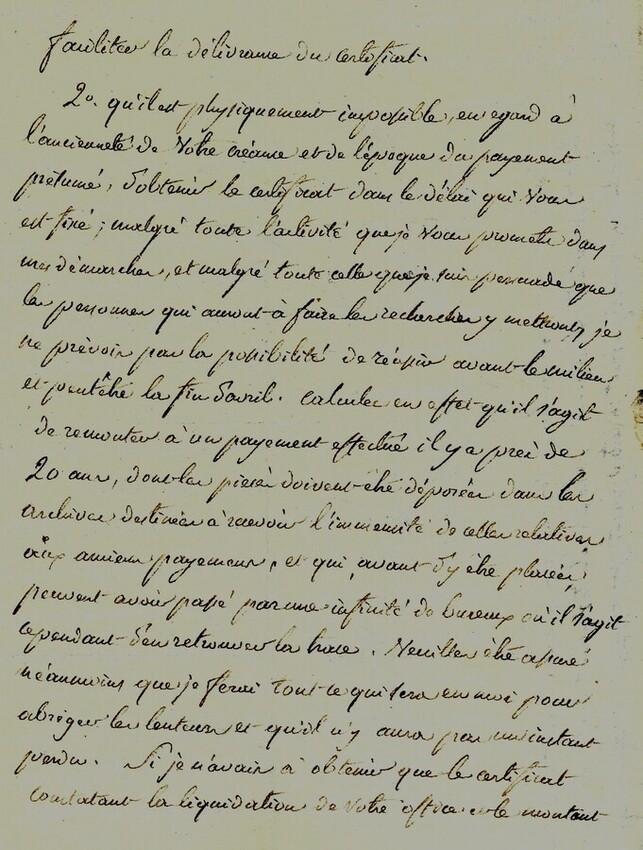 faciliter la délivrance du certificat.
2º. qu'il est physiquement impossible, en egard à
l'ancienneté de Votre créance et de l'époque du payement
présumé, d'obtenir le certificat dans le délai qui Vous
est fixé; malgré toute l'activité que je Vous promets dans
mes démarches, et malgré toute celle que je suis persuadé que
les personnes qui auront à faire les recherches y mettront, je
ne prévois pas la possibilité de réussir avant le milieu
et peutêtre la fin d'avril. Calculez en effet qu'il s'agit
de remonter à un payement effectué il y a près de
20 ans, dont les pièces doivent être déposées dans les
archives destinées à recevoir l'immensité de celles relatives
aux anciens payemens, et qui, avant d'y être placées,
peuvent avoir passé par une infinité de bureaux où il s'agit
cependant d'en retrouver la trace. Veuillez être assuré
néanmoins que je ferai tout ce qui sera en moi pour
abréger les lenteurs et qu'il n'y aura pas un instant
perdu. Si je n'avais à obtenir que le certificat
constatant la liquidation de Votre office et le montant